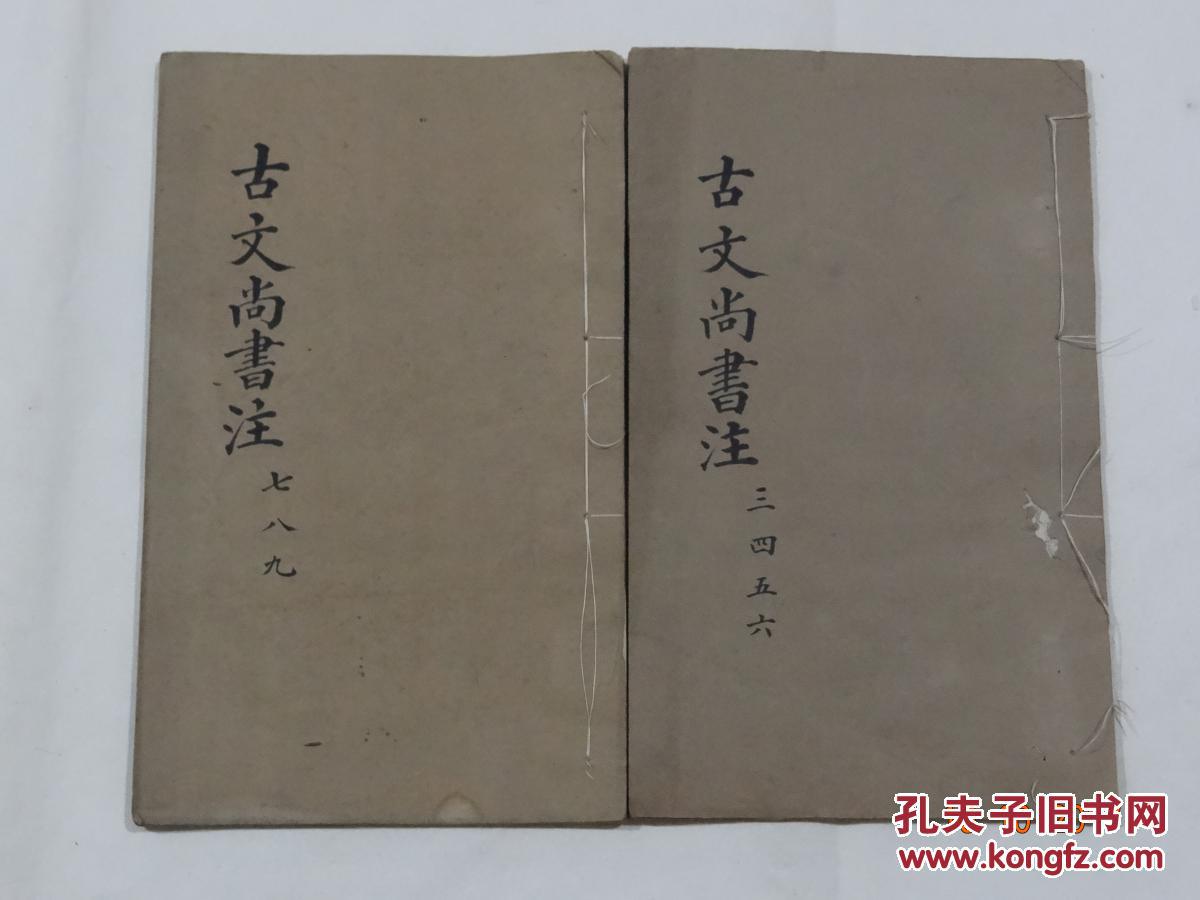 古文尚書注
三四五六
古文尚書注
七八九
孔夫子旧书网
www.kongfz.com